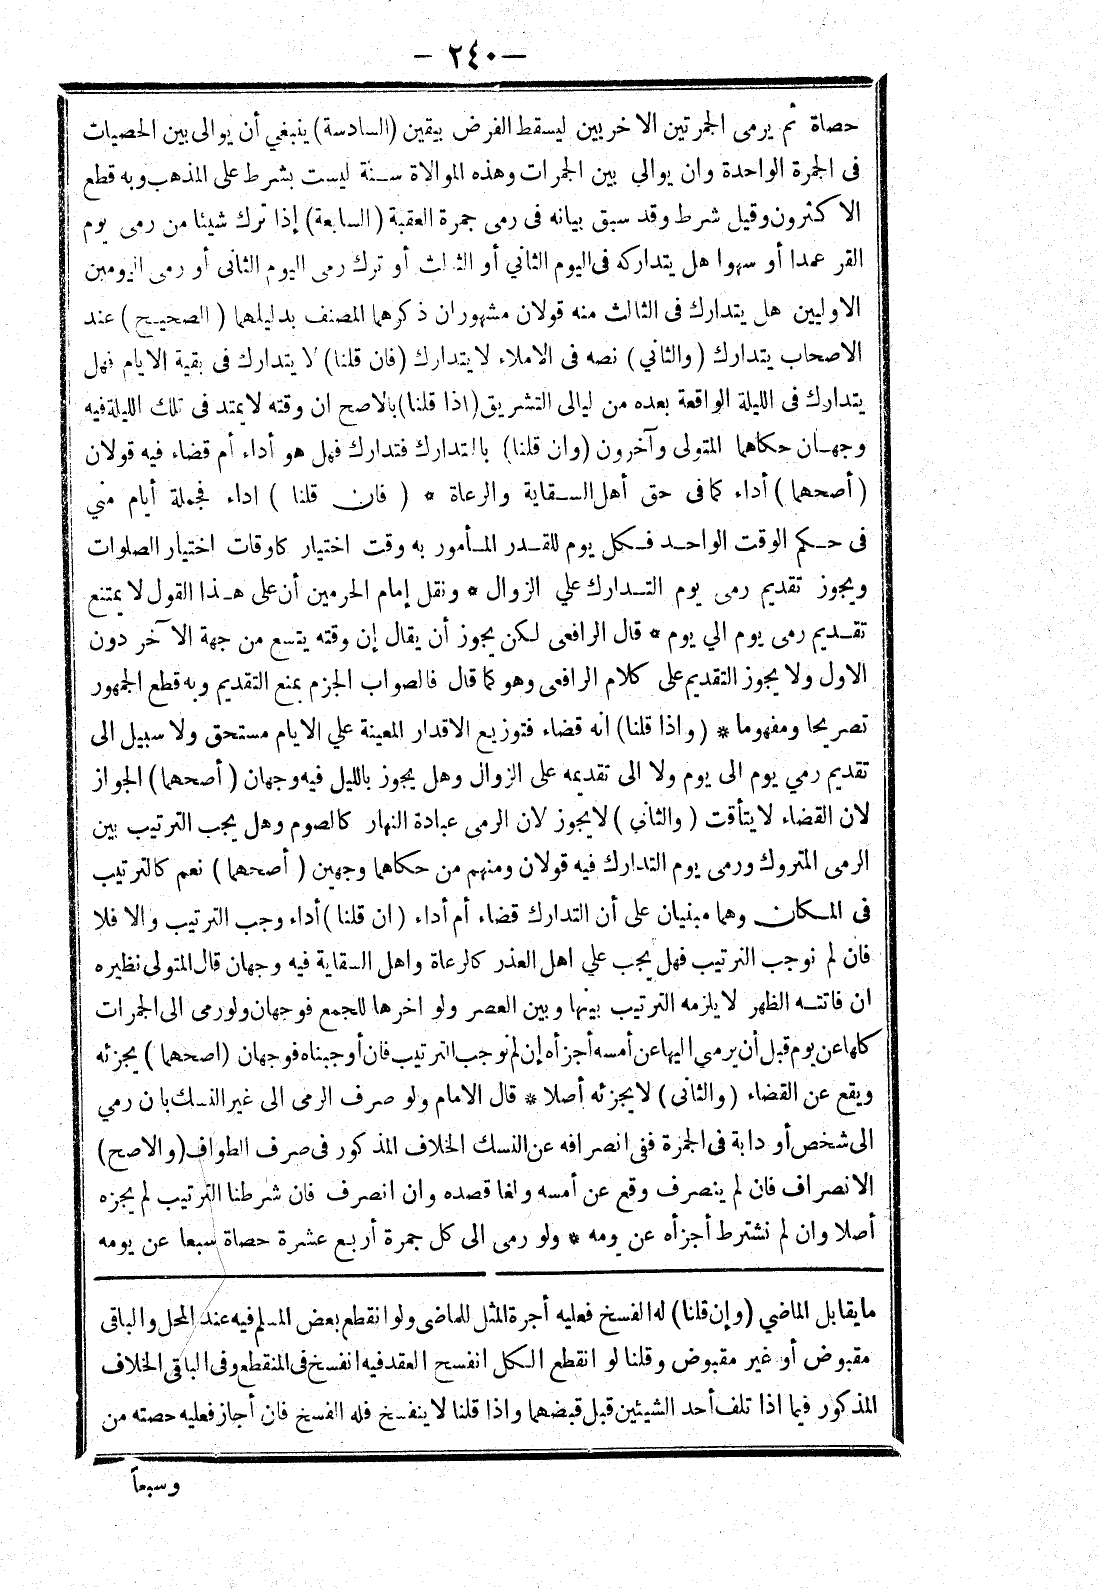 — ٢٤٠ —
حصاة ثم يرمى الجمرتين الاخريين ليسقط الفرض بيقين (السادسة) ينبغي أن يوالى بين الحصيات
فى الجمرة الواحدة وان يوالي بين الجمرات وهذه الموالاة سنة ليست بشرط على المذهب وبه قطع
الاكثرون وقيل شرط وقد سبق بيانه فى رمى جمرة العقبة (السابعة) إذا ترك شيئا من رمى يوم
القر عمدا أو سهوا هل يتداركه فى اليوم الثاني أو الثالث أو ترك رمى اليوم الثانى أو رمى اليومين
الاوليين هل يتدارك فى الثالث منه قولان مشهوران ذكرهما المصنف بدليلهما (الصحيح) عند
الاصحاب يتدارك (والثاني) نصه فى الاملاء لايتدارك (فان قلنا) لا يتدارك فى بقية الايام فهل
يتدارك فى الليلة الواقعة بعده من ليالى التشريق (اذا قلنا) بالاصح ان وقته لايمتد فى تلك الليلة فيه
وجهان حكاهما المتولى وآخرون (وان قلنا) بالتدارك فتدارك فهل هو أداء أم قضاء فيه قولان
(أصحهما) أداء كما فى حق أهل السقاية والرعاة * (فان قلنا) اداء فجملة أيام مني
فى حكم الوقت الواحد فكل يوم للقدر المأمور به وقت اختيار كاوقات اختيار الصلوات
ويجوز تقديم رمى يوم التدارك علي الزوال * ونقل إمام الحرمين أن على هذا القول لا يمتنع
تقديم رمى يوم الي يوم * قال الرافعى لكن يجوز أن يقال إن وقته يتسع من جهة الآخر دون
الاول ولا يجوز التقديم على كلام الرافعى وهو كما قال فالصواب الجزم بمنع التقديم وبه قطع الجمهور
تصريحا ومفهوما * (واذا قلنا) انه قضاء فتوزيع الاقدار المعينة علي الايام مستحق ولا سبيل الى
تقديم رمي يوم الى يوم ولا الى تقديمه على الزوال وهل يجوز بالليل فيه وجهان (أصحهما) الجواز
لان القضاء لايتأقت (والثاني) لايجوز لان الرمى عبادة النهار كالصوم وهل يجب الترتيب بين
الرمى المتروك ورمى يوم التدارك فيه قولان ومنهم من حكاهما وجهين (أصحهما) نعم كالترتيب
فى المكان وهما مبنيان على أن التدارك قضاء أم أداء (ان قلنا) أداء وجب الترتيب والا فلا
فان لم نوجب الترتيب فهل يجب علي اهل العذر كالرعاة واهل السقاية فيه وجهان قال المتولي نظيره
ان فاتته الظهر لا يلزمه الترتيب بينها وبين العصر ولو اخرها للجمع فوجهان ولو رمى الى الجمرات
كلها عن يوم قبل أن يرمي اليها عن أمسه أجزأه إن لم نوجب الترتيب فان أوجبناه فوجهان (اصحهما) يجزئه
ويقع عن القضاء (والثانى) لا يجزئه أصلا * قال الامام ولو صرف الرمى الى غير النسك بان رمي
الى شخص أو دابة فى الجمرة ففى انصرافه عن النسك الخلاف المذكور فى صرف الطواف (والاصح)
الانصراف فان لم ينصرف وقع عن أمسه ولغا قصده وان انصرف فان شرطنا الترتيب لم يجزه
أصلا وان لم نشترط أجزأه عن يومه * ولو رمى الى كل جمرة أربع عشرة حصاة سبعا عن يومه
مايقابل الماضي (وإن قلنا) له الفسخ فعليه أجرة المثل للماضى ولو انقطع بعض المسلم فيه عند المحل والباقى
مقبوض أو غير مقبوض وقلنا لو انقطع الكل انفسح العقد فيه انفسخ فى المنقطع وفى الباقى الخلاف
المذكور فيما اذا تلف أحد الشيئين قبل قبضهما واذا قلنا لا ينفسخ فله الفسخ فان أجاز فعليه حصته من
وسبعاً